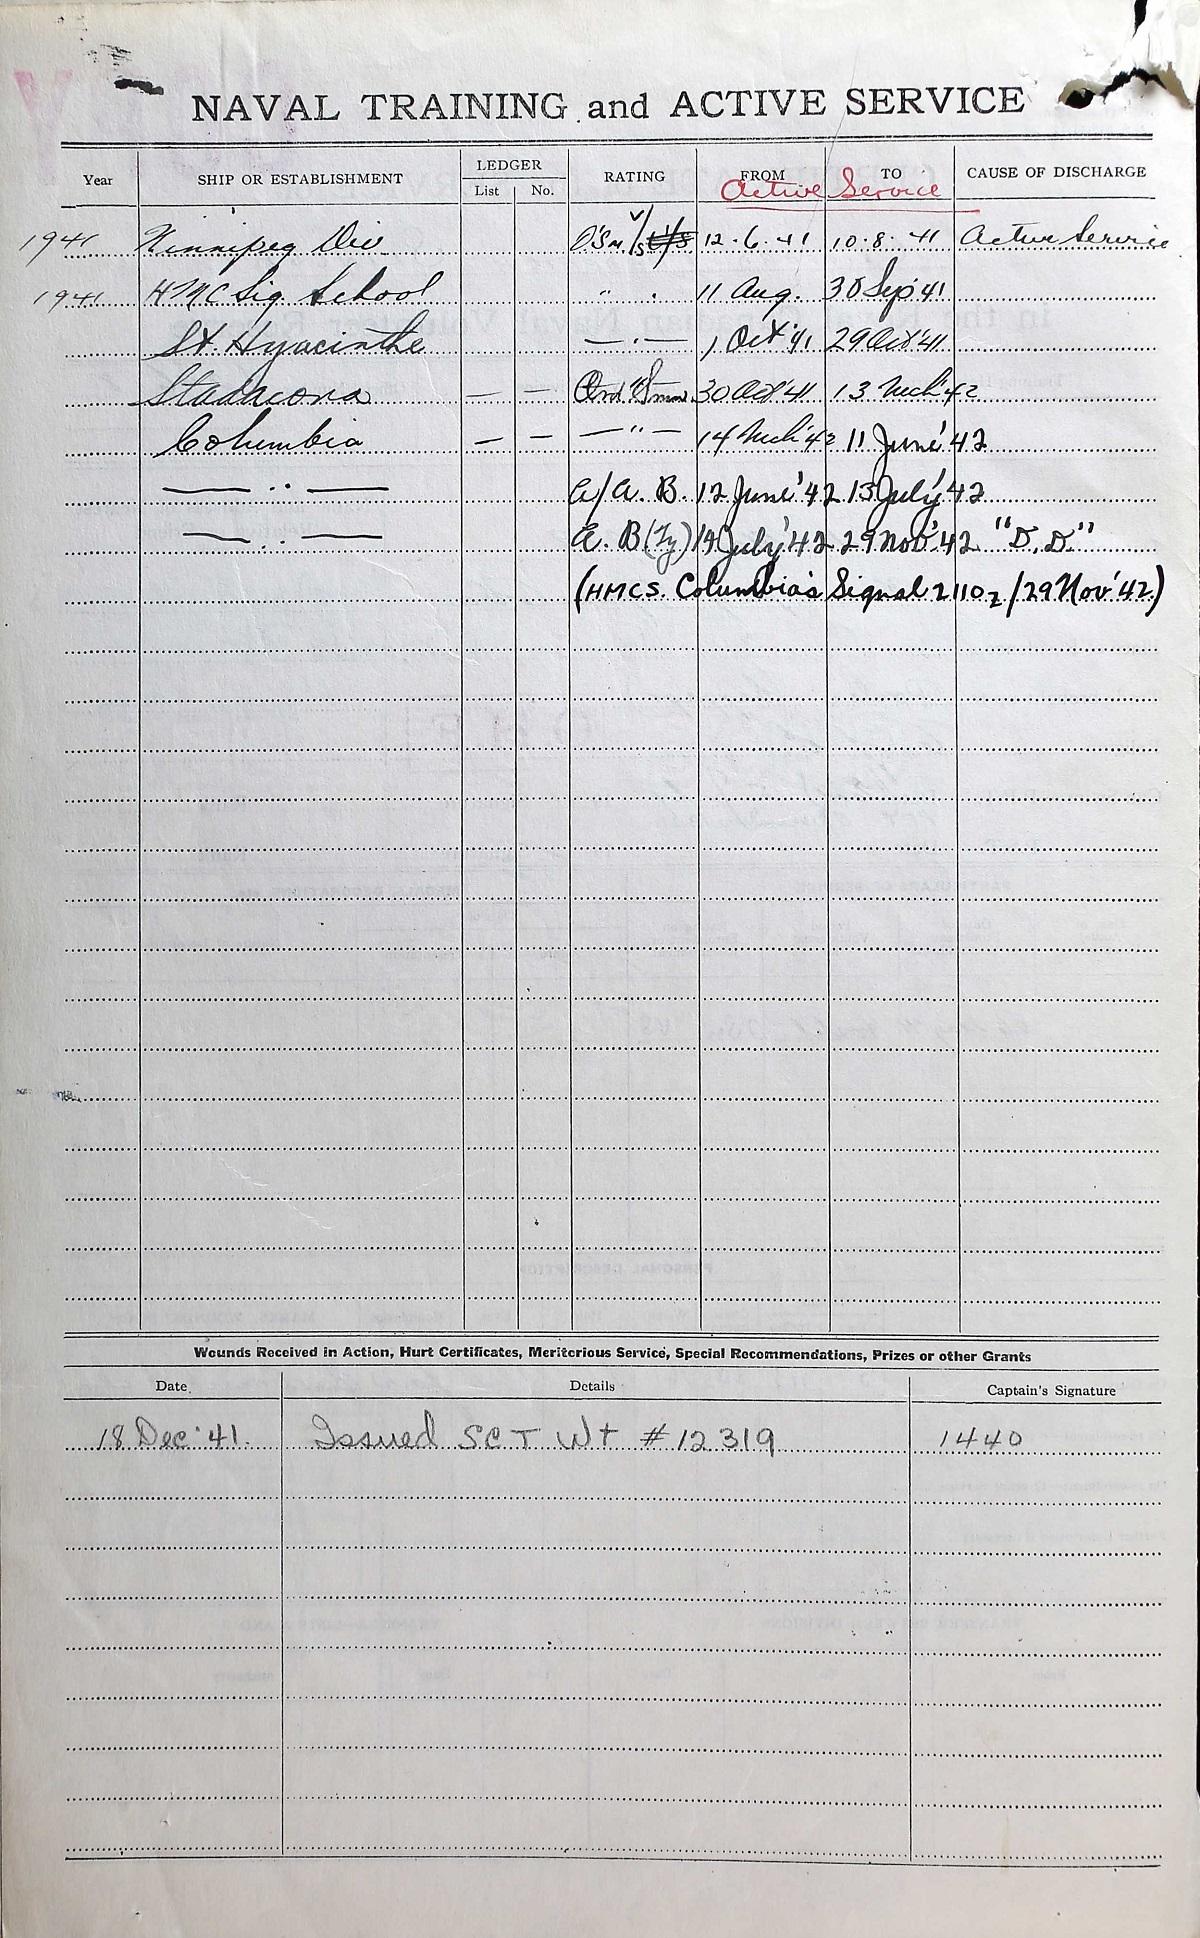 NAVAL TRAINING and ACTIVE SERVICE
Year SHIP OR ESTABLISHMENT LEDGER List No. RATING FROM TO CAUSE OF DISCHARGE
Active Service
1941 Winnipeg Div O'Sm V/S 12.6.41 10.8.41 Active Service
1941 HMC Sig. School " . 11 Aug. 30 Sep '41
St. Hyacinthe — . — 1 Oct '41 29 Oct '41
Stadacona — — Ord Smn 30 Oct '41 13 Mch '42
Columbia — — — " — 14 Mch '42 11 June '42
— .. — A/A. B. 12 June '42 13 July '42
— .. — A. B (Ty) 14 July '42 29 Nov '42 "D.D."
(HMCS. Columbia's Signal 2110z/29 Nov '42.)
Wounds Received in Action, Hurt Certificates, Meritorious Service, Special Recommendations, Prizes or other Grants
Date Details Captain's Signature
18 Dec '41. Issued SCT Wt #12319 1440